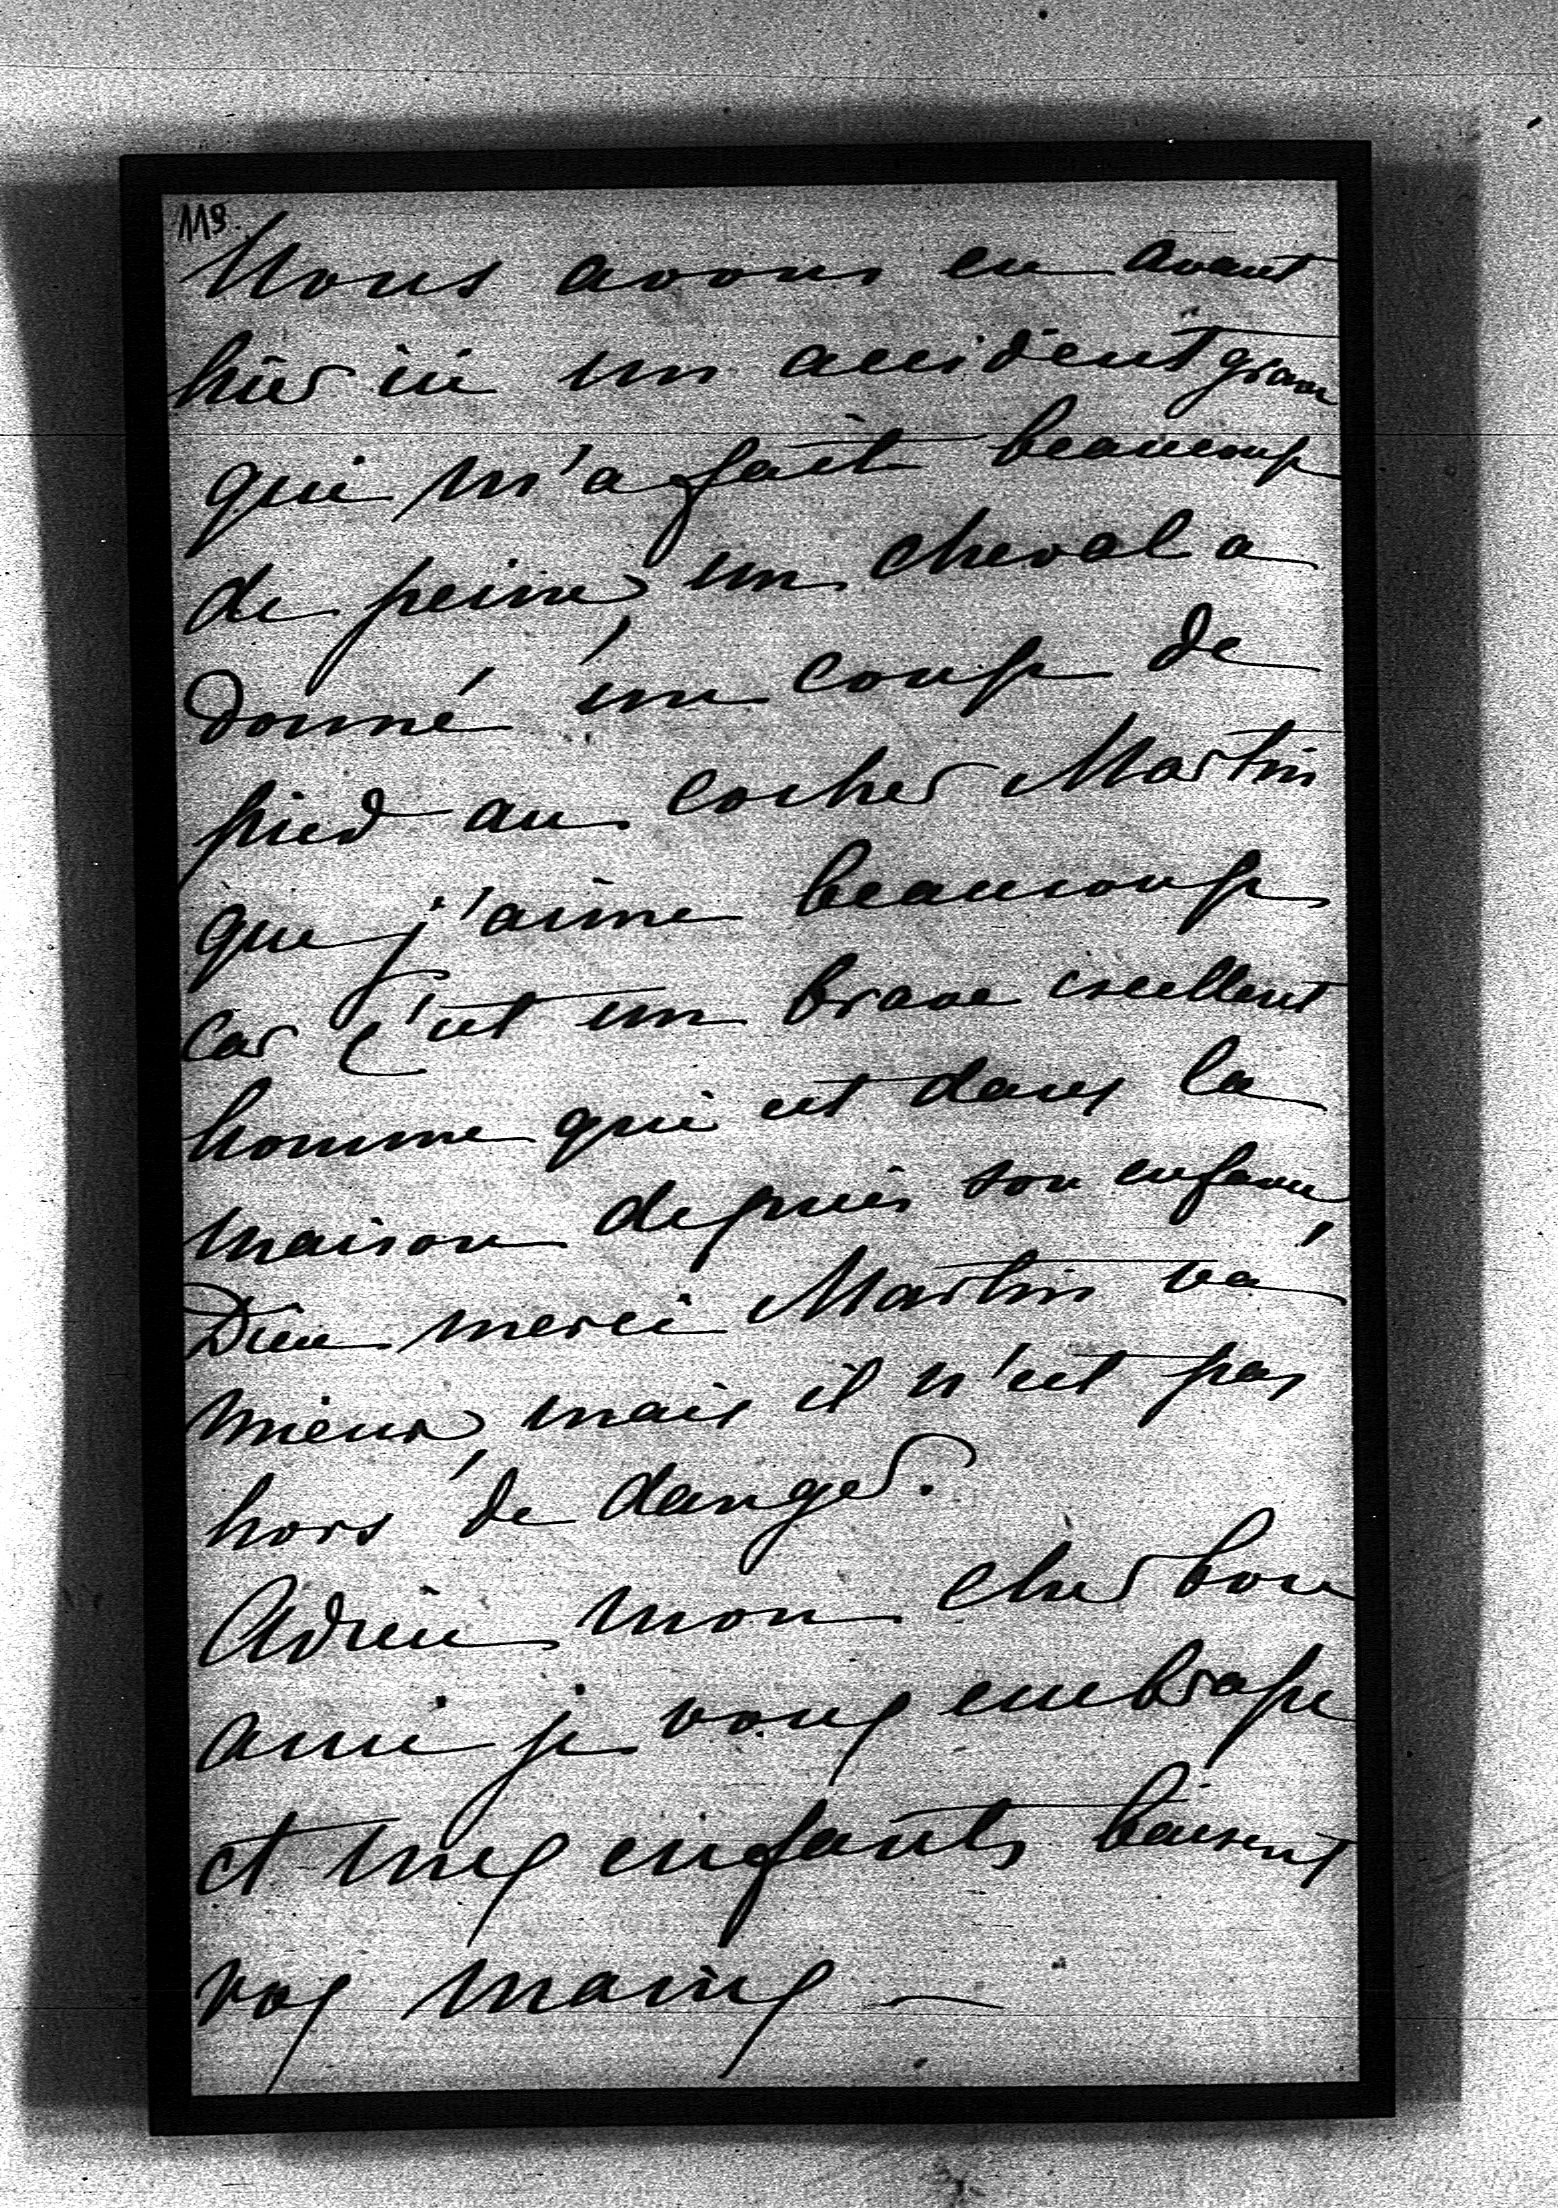 119.
Nous avons eu avant
hier ici un accident grave
qui m'a fait beaucoup
de peine, un cheval a
donné un coup de
pied au cocher Martin
que j'aime beaucoup
car c'est un brave excellent
homme qui est dans la
maison depuis son enfance
Dieu merci Martin va
mieux, mais il n'est pas
hors de danger.
Adieu mon cher bon
ami je vous embrasse
et mes enfants baisent
vos mains —